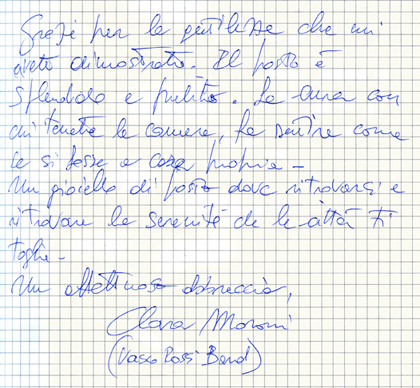 Grazie per la gentilezza che mi
avete dimostrato. Il posto è
splendido e pulito. La cura con
cui tenete le camere, fa sentire come
se si fosse a casa propria -
Un gioiello di posto dove ritrovarsi e
ritrovare la serenità che la città ti
toglie.
Un affettuoso abbraccio,
Clara Moroni
(Vasco Rossi Band)